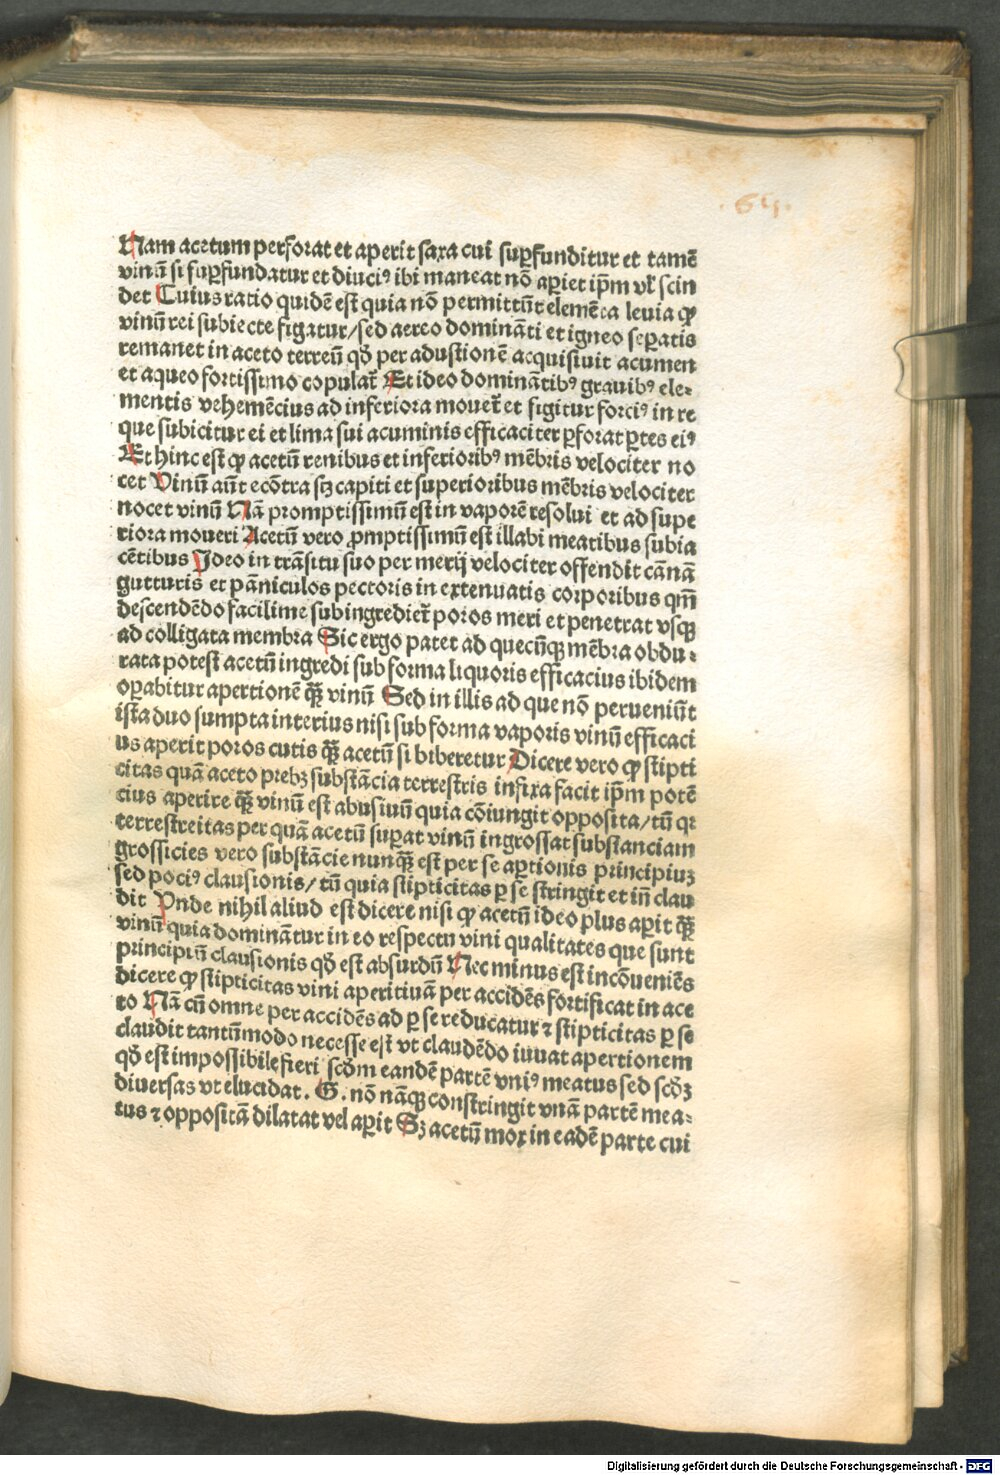 .64.
Nam acetum perforat et aperit saxa cui suꝑfunditur et tamē
vinū si suꝑfundatur et diuciꝰ ibi maneat nō aꝑiet ip̄m vl̓ scin
det Cuius ratio quidē est quia nō permittūt elemēta leuia ꝙ
vinū rei subiecte figatur/sed aereo domināti et igneo seꝑatis
remanet in aceto terreū qd̓ per adustionē acquisiuit acumen
et aqueo fortissimo copulat᷑ Et ideo dominātibꝰ grauibꝰ ele-
mentis vehemēcius ad inferiora mouet᷑ et figitur forciꝰ in re
que subicitur ei et lima sui acuminis efficaciter ꝑforat ꝑtes eiꝰ
Et hinc est ꝙ acetū renibus et inferioribꝰ mēbris velociter no
cet Vinū aūt ecōtra scꝫ capiti et superioribus mēbris velociter
nocet vinū Nā promptissimū est in vaporē resolui et ad supe
riora moueri Acetū vero ꝓmptissimū est illabi meatibus subia
cētibus Ideo in trāsitu suo per merij velociter offendit cānā
gutturis et pāniculos pectoris in extenuatis corporibus qm̄
descendēdo facilime subingrediet᷑ poros meri et penetrat vsqꝫ
ad colligata membra Sic ergo patet ad quecūqꝫ mēbra obdu-
rata potest acetū ingredi sub forma liquoris efficacius ibidem
oꝑabitur apertionē q̄ꝫ vinū Sed in illis ad que nō perueniūt
ista duo sumpta interius nisi sub forma vaporis vinū efficaci
us aperit poros cutis q̄ꝫ acetū si biberetur Dicere vero ꝙ stipti
citas quā aceto prebꝫ substācia terrestris infixa facit ip̄m potē
cius aperire q̄ꝫ vinū est abusiuū quia cōiungit opposita/tū qꝛ
terrestreitas per quā acetū suꝑat vinū ingrossat substanciam
grossicies vero substācie nunq̄ꝫ est per se aꝑtionis principiuꝫ
sed pociꝰ clausionis/tū quia stipticitas ꝑ se stringit et in̄ clau
dit Vnde nihil aliud est dicere nisi ꝙ acetū ideo plus aꝑit q̄ꝫ
vinū quia dominātur in eo respectu vini qualitates que sunt
principiū clausionis qd̓ est absurdū Nec minus est incōueniēs
dicere ꝙ stipticitas vini aperitiuā per accidēs fortificat in ace
to Nā cū omne per accidēs ad ꝑ se reducatur ⁊ stipticitas ꝑ se
claudit tantūmodo necesse est vt claudēdo iuuat apertionem
qd̓ est impossibile fieri scd̓m eandē partē vniꝰ meatus sed scd̓ꝫ
diuersas vt elucidat. G. nō nāqꝫ constringit vnā partē mea-
tus ⁊ oppositā dilatat vel aꝑit Sꝫ acetū mox in eadē parte cui
Digitalisierung gefördert durch die Deutsche Forschungsgemeinschaft - DFG